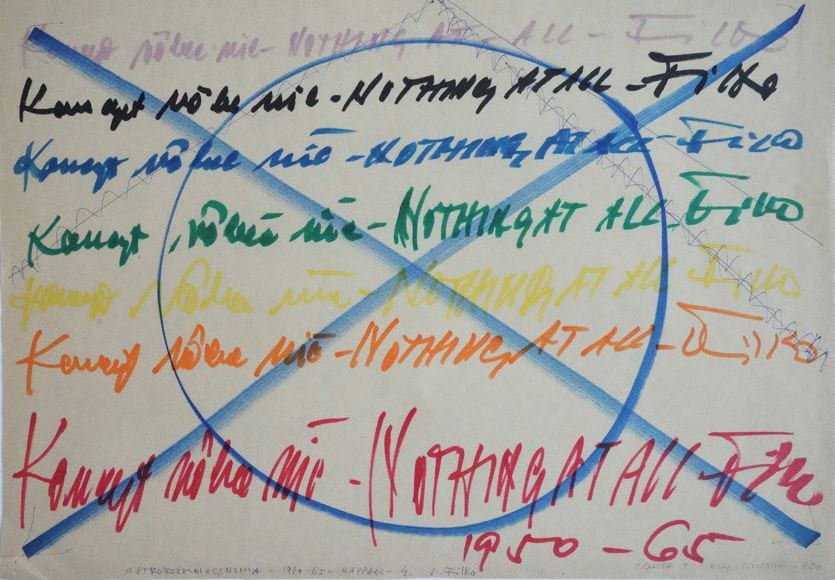 Koncept vôbec nič - NOTHING AT ALL - Filko
Koncept vôbec nič - NOTHING AT ALL - Filko
Koncept vôbec nič - NOTHING AT ALL - Filko
Koncept vôbec nič - NOTHING AT ALL - Filko
Koncept vôbec nič - NOTHING AT ALL - Filko
Koncept vôbec nič - NOTHING AT ALL - Filko
Koncept vôbec nič - NOTHING AT ALL - Filko
1950 - 65
- 1960-65 - 4. S. Filko